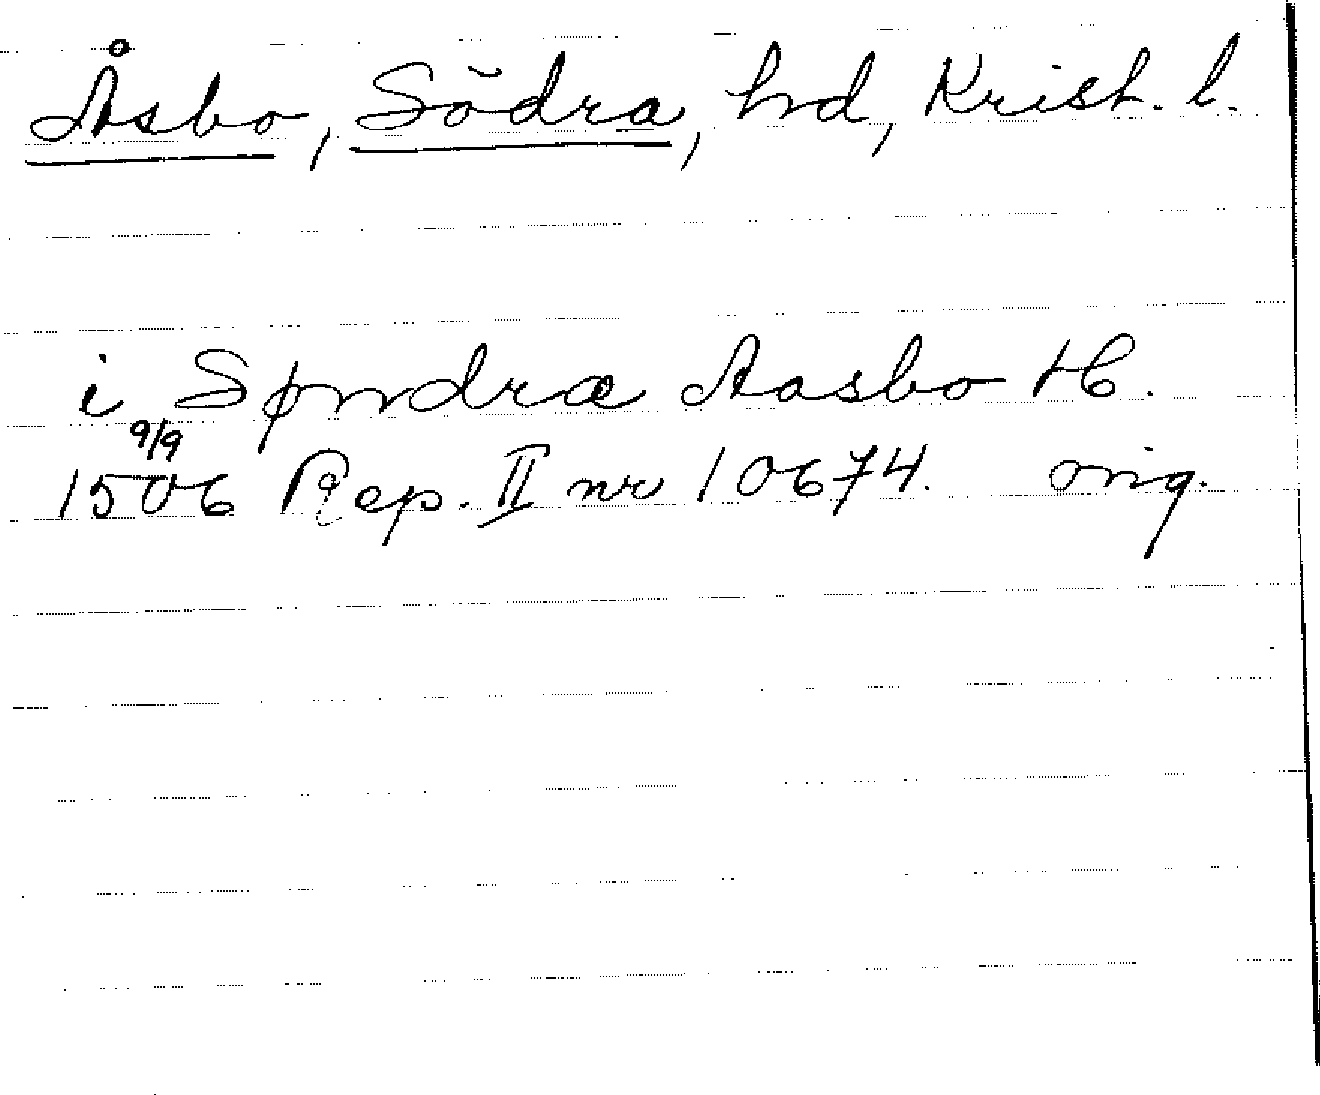 Åsbo, Södra, hd, Krist. l.
i Søndra Aasbo H.
9/9
1506 Rep. II nr 10674. orig.